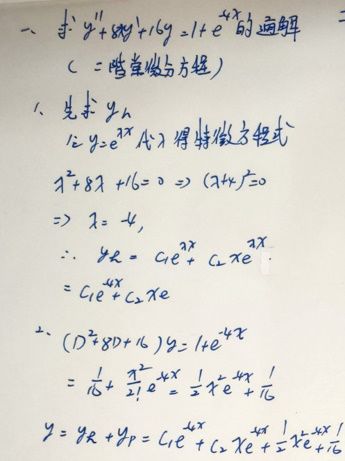 一、求 y''+8y'+16y=1+e^{-4x} 的通解
(二階常微分方程)
1. 先求 y_h
以 y=e^{λx} 代入得特徵方程式
λ²+8λ+16=0 => (λ+4)²=0
=> λ=-4,
∴ y_h = c₁e^{λx} + c₂xe^{λx}
= c₁e^{-4x} + c₂xe
2. (D²+8D+16)y=1+e^{-4x}
= 1/16 + x²/2! e^{-4x} = 1/2 x²e^{-4x} + 1/16
y = y_h + y_p = c₁e^{-4x} + c₂xe^{-4x} + 1/2 x²e^{-4x} + 1/16